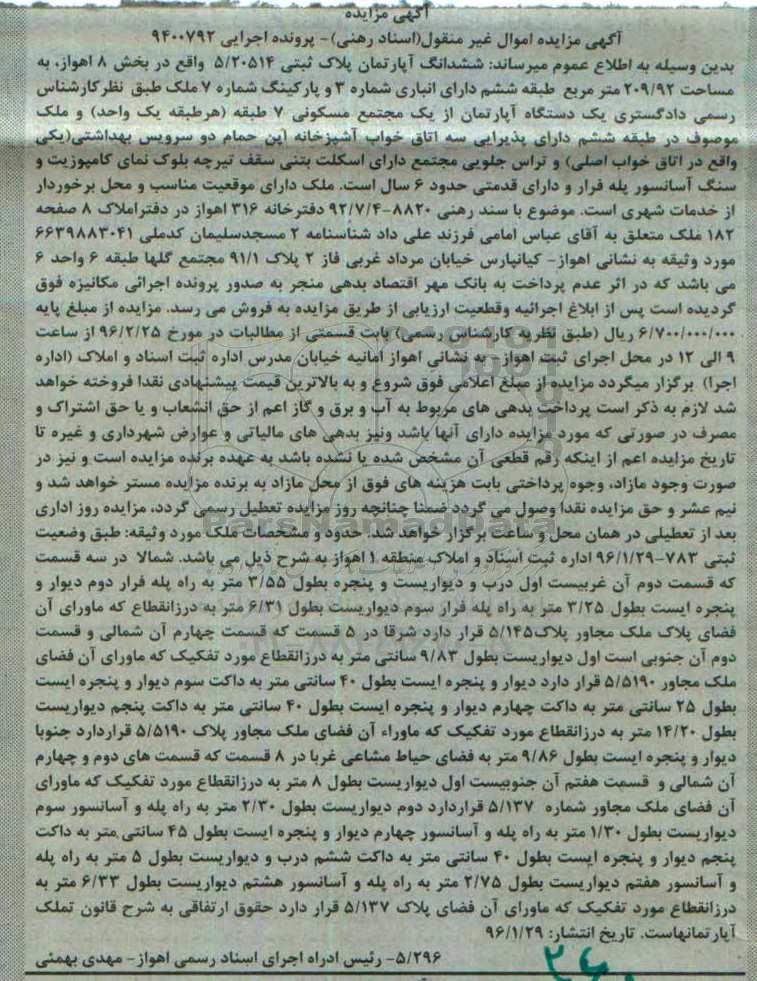 آگهی مزایده
آگهی مزایده اموال غیر منقول(اسناد رهنی)- پرونده اجرایی ۹۴۰۰۷۹۲
بدین وسیله به اطلاع عموم میرساند: ششدانگ آپارتمان پلاک ثبتی ۵/۲۰۵۱۴ واقع در بخش ۸ اهواز، به
مساحت ۲۰۹/۹۲ متر مربع طبقه ششم دارای انباری شماره ۳ و پارکینگ شماره ۷ ملک طبق نظر کارشناس
رسمی دادگستری یک دستگاه آپارتمان از یک مجتمع مسکونی ۷ طبقه (هرطبقه یک واحد) و ملک
موصوف در طبقه ششم دارای پذیرایی سه اتاق خواب آشپزخانه اپن حمام دو سرویس بهداشتی(یکی
واقع در اتاق خواب اصلی) و تراس جلویی مجتمع دارای اسکلت بتنی سقف تیرچه بلوک نمای کامپوزیت و
سنگ آسانسور پله فرار و دارای قدمتی حدود ۶ سال است. ملک دارای موقعیت مناسب و محل برخوردار
از خدمات شهری است. موضوع با سند رهنی ۸۸۲۰-۹۲/۷/۴ دفترخانه ۳۱۶ اهواز در دفتراملاک ۸ صفحه
۱۸۲ ملک متعلق به آقای عباس امامی فرزند علی داد شناسنامه ۲ مسجدسلیمان کدملی ۶۶۳۹۸۸۳۰۴۱
مورد وثیقه به نشانی اهواز- کیانپارس خیابان مرداد غربی فاز ۲ پلاک ۹۱/۱ مجتمع گلها طبقه ۶ واحد ۶
می باشد که در اثر عدم پرداخت به بانک مهر اقتصاد بدهی منجر به صدور پرونده اجرائی مکانیزه فوق
گردیده است پس از ابلاغ اجرائیه وقطعیت ارزیابی از طریق مزایده به فروش می رسد. مزایده از مبلغ پایه
۶/۷۰۰/۰۰۰/۰۰۰ ریال (طبق نظریه کارشناس رسمی) بابت قسمتی از مطالبات در مورخ ۹۶/۲/۲۵ از ساعت
۹ الی ۱۲ در محل اجرای ثبت اهواز - به نشانی اهواز امانیه خیابان مدرس اداره ثبت اسناد و املاک (اداره
اجرا) برگزار میگردد مزایده از مبلغ اعلامی فوق شروع و به بالاترین قیمت پیشنهادی نقدا فروخته خواهد
شد لازم به ذکر است پرداخت بدهی های مربوط به آب و برق و گاز اعم از حق انشعاب و یا حق اشتراک و
مصرف در صورتی که مورد مزایده دارای آنها باشد ونیز بدهی های مالیاتی و عوارض شهرداری و غیره تا
تاریخ مزایده اعم از اینکه رقم قطعی آن مشخص شده یا نشده باشد به عهده برنده مزایده است و نیز در
صورت وجود مازاد، وجوه پرداختی بابت هزینه های فوق از محل مازاد به برنده مزایده مستر خواهد شد و
نیم عشر و حق مزایده نقدا وصول می گردد ضمنا چنانچه روز مزایده تعطیل رسمی گردد، مزایده روز اداری
بعد از تعطیلی در همان محل و ساعت برگزار خواهد شد. حدود و مشخصات ملک مورد وثیقه: طبق وضعیت
ثبتی ۷۸۳-۹۶/۱/۲۹ اداره ثبت اسناد و املاک منطقه ۱ اهواز به شرح ذیل می باشد. شمالا در سه قسمت
که قسمت دوم آن غربیست اول درب و دیواریست و پنجره بطول ۳/۵۵ متر به راه پله فرار دوم دیوار و
پنجره ایست بطول ۳/۲۵ متر به راه پله فرار سوم دیواریست بطول ۶/۳۱ متر به درزانقطاع که ماورای آن
فضای پلاک ملک مجاور پلاک۵/۱۴۵ قرار دارد شرقا در ۵ قسمت که قسمت چهارم آن شمالی و قسمت
دوم آن جنوبی است اول دیواریست بطول ۹/۸۳ سانتی متر به درزانقطاع مورد تفکیک که ماورای آن فضای
ملک مجاور ۵/۵۱۹۰ قرار دارد دیوار و پنجره ایست بطول ۴۰ سانتی متر به داکت سوم دیوار و پنجره ایست
بطول ۲۵ سانتی متر به داکت چهارم دیوار و پنجره ایست بطول ۴۰ سانتی متر به داکت پنجم دیواریست
بطول ۱۴/۲۰ متر به درزانقطاع مورد تفکیک که ماوراء آن فضای ملک مجاور پلاک ۵/۵۱۹۰ قراردارد جنوبا
دیوار و پنجره ایست بطول ۹/۸۶ متر به فضای حیاط مشاعی غربا در ۸ قسمت که قسمت های دوم و چهارم
آن شمالی و قسمت هفتم آن جنوبیست اول دیواریست بطول ۸ متر به درزانقطاع مورد تفکیک که ماورای
آن فضای ملک مجاور شماره ۵/۱۳۷ قراردارد دوم دیواریست بطول ۲/۳۰ متر به راه پله و آسانسور سوم
دیواریست بطول ۱/۳۰ متر به راه پله و آسانسور چهارم دیوار و پنجره ایست بطول ۴۵ سانتی متر به داکت
پنجم دیوار و پنجره ایست بطول ۴۰ سانتی متر به داکت ششم درب و دیواریست بطول ۵ متر به راه پله
و آسانسور هفتم دیواریست بطول ۲/۷۵ متر به راه پله و آسانسور هشتم دیواریست بطول ۶/۳۳ متر به
درزانقطاع مورد تفکیک که ماورای آن فضای پلاک ۵/۱۳۷ قرار دارد حقوق ارتفاقی به شرح قانون تملک
آپارتمانهاست. تاریخ انتشار: ۹۶/۱/۲۹
۵/۲۹۶- رئیس ادراه اجرای اسناد رسمی اهواز- مهدی بهمئی
ParsNamadData